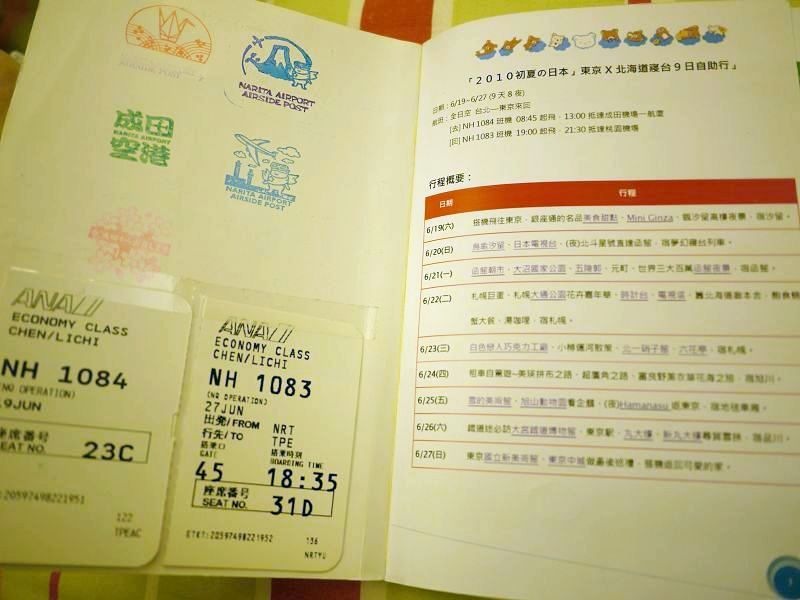 AIRSIDE POST
NARITA AIRPORT
AIRSIDE POST
成田
NARITA AIRPORT
空港
NARITA AIRPORT
AIRSIDE POST
ANA
ECONOMY CLASS
CHEN/LICHI
NH 1084
(NQ OPERATION)
19JUN
座席番号
SEAT NO. 23C
:20597498221951
122
TPEAC
ANA
ECONOMY CLASS
CHEN/LICHI
NH 1083
(NQ OPERATION)
27JUN
出発/FROM NRT
行先/TO TPE
搭乗口 搭乗時刻
GATE BOARDING TIME
45 18:35
座席番号
SEAT NO. 31D
ETKT:20597498221952 136
NRTYU
「2010初夏の日本」東京X北海道寢台9日自助行」
日期：6/19~6/27 (9天8夜)
航班：全日空 台北—東京來回
[去] NH 1084 班機 08:45 起飛，13:00 抵達成田機場一航廈
[回] NH 1083 班機 19:00 起飛，21:30 抵達桃園機場
行程概要：
日期 行程
6/19(六) 搭機飛往東京、銀座通的名品美食甜點、Mini Ginza、汐留高樓夜景，宿汐留。
6/20(日) 汐留、日本電視台、(夜)北斗星號直達函館，宿夢幻寢台列車。
6/21(一) 函館朝市、大沼國家公園、五陵郭、元町、世界三大百萬函館夜景，宿函館。
6/22(二) 札幌巨蛋、札幌大通公園花卉嘉年華、時計台、電視塔、舊北海道廳本去、
蟹大餐、湯咖哩，宿札幌。
6/23(三) 白色戀人巧克力工廠、小樽運河散策、北一硝子館、六花亭，宿札幌。
6/24(四) 租車自駕遊~美瑛拼布之路、超廣角之路、富良野薰衣草花海之旅，宿旭川。
6/25(五) 雪的美術館、旭山動物園看企鵝、(夜)Hamanasu 返東京，宿地毯車廂。
6/26(六) 鐵道迷必訪大宮鐵道博物館、東京駅、丸大樓、新丸大樓尋寶買，宿品川。
6/27(日) 東京國立新美術館、東京中城做最後巡禮，搭機返回可愛的家。